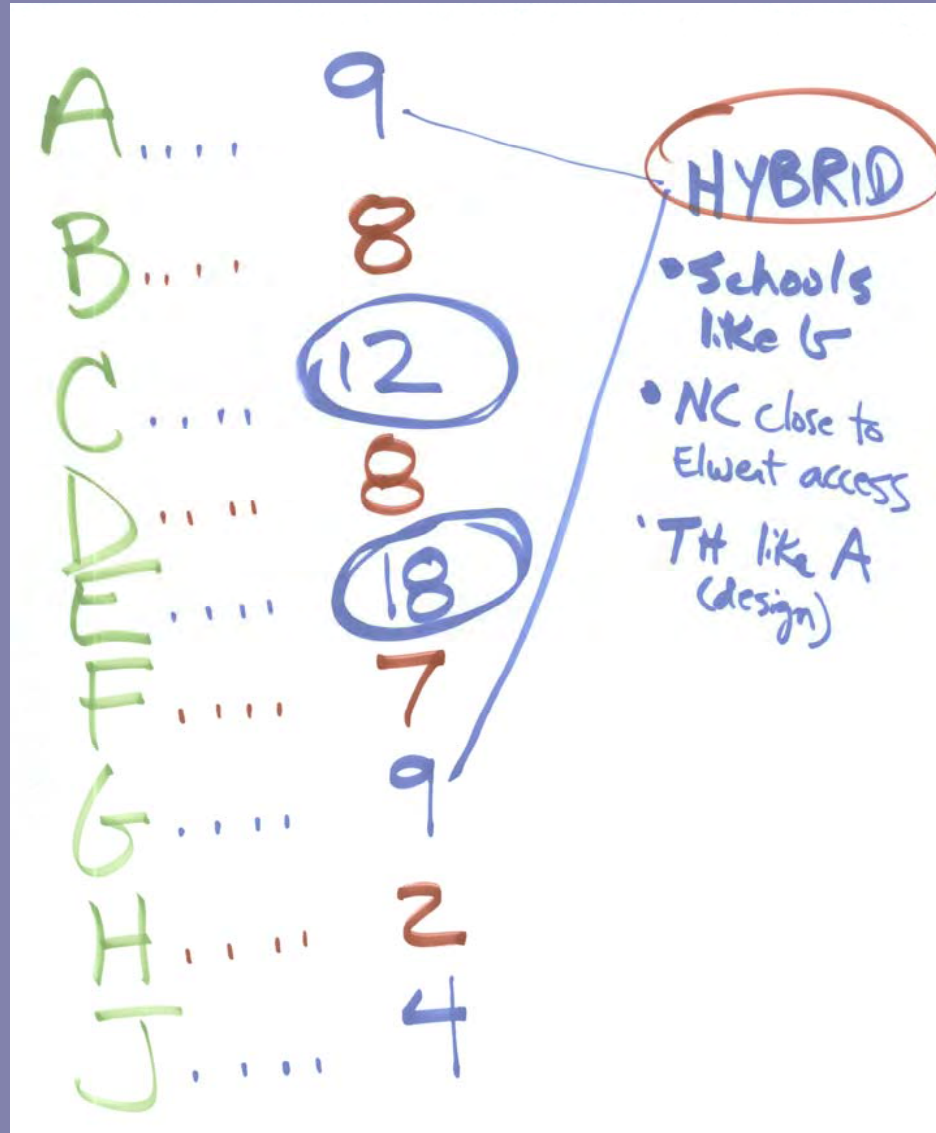 A.... 9
B.... 8
C.... 12
D.... 8
E.... 18
F.... 7
G.... 9
H.... 2
J.... 4
HYBRID
• Schools
like G
• NC close to
Elwert access
• TH like A
(design)